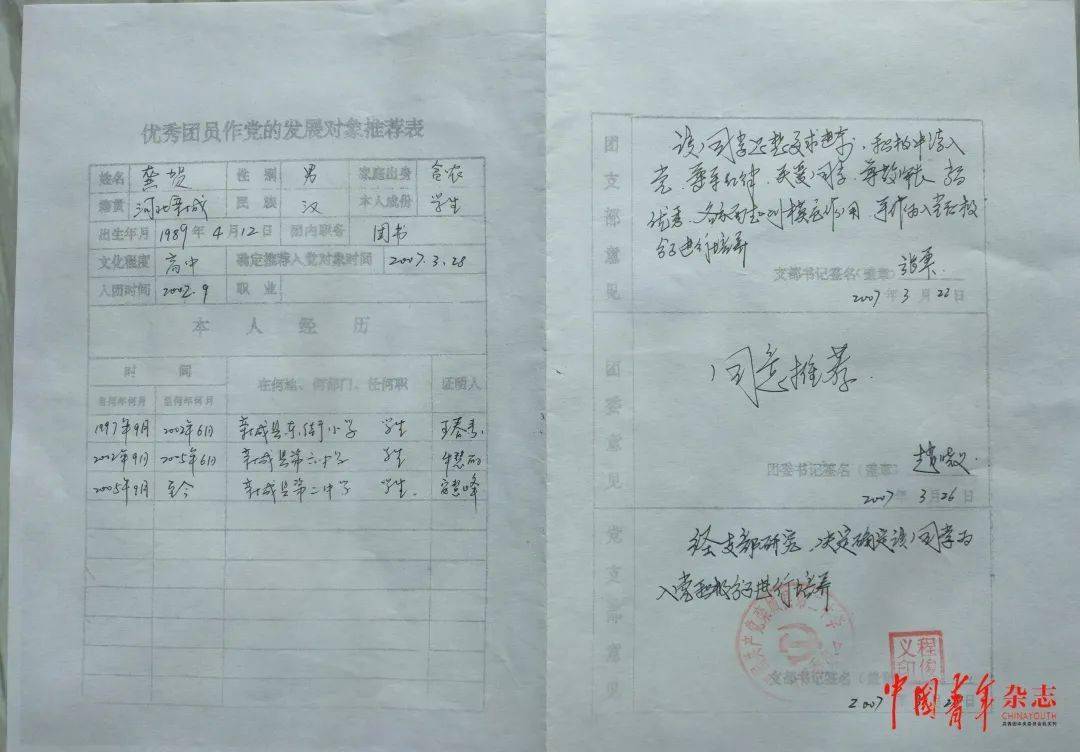 优秀团员作党的发展对象推荐表
姓名 龚贺 性别 男 家庭出身 贫农
籍贯 河北 民族 汉 本人成份 学生
出生年月 1989年4月12日 团内职务 团书
文化程度 高中 确定推荐入党对象时间 2007.3.28
入团时间 2002.9 职业
本人经历
时间 在何地、何部门、任何职 证明人
自何年何月 至何年何月
1997年9月 2002年6月 县东街小学 学生 王春秀
2002年9月 2005年6月 县第六中学 学生
2005年9月 至今 县第二中学 学生
团支部意见
该同学思想要求进步,积极申请入
党,尊守纪律,关爱同学,尊敬师长
优秀,各方面起到模范作用,
进行培养
支部书记签名(盖章)
2007年3月22日
团委意见
同意推荐.
团委书记签名(盖章)
2007年3月26日
党支部意见
经支部研究,决定确定该同学为
入党积极分子进行培养
支部书记签名(盖章)
程俊
义印
2007
中国青年杂志
CHINAYOUTH